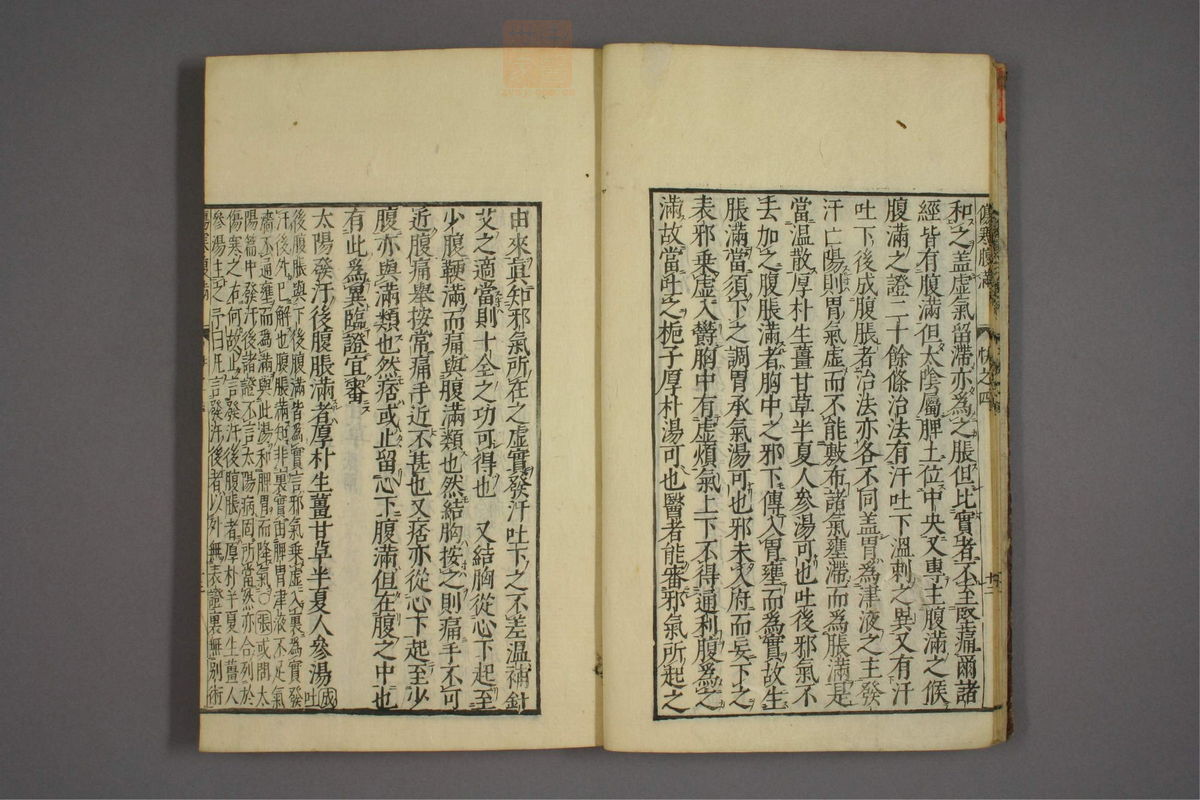 傷寒腹滿
快之四
和之盖虚氣留滯亦為之脹但比實者不至堅痛爾諸
經皆有腹滿但太陰屬脾土位中央又專主腹滿之候
腹滿之證二十餘條治法有汗吐下温刺之異又有汗
吐下後成腹脹者治法亦各不同盖胃為津液之主發
汗亡陽則胃氣虚而不能敷布諸氣壅滯而為脹滿是
當温散厚朴生薑甘草半夏人參湯可也吐後邪氣不
去加之腹脹滿者胸中之邪下傳入胃壅而為實故生
脹滿當須下之調胃承氣湯可也邪未入府而妄下之
表邪乗虚入欝胸中有虚煩氣上下不得通利腹為之
滿故當吐之梔子厚朴湯可也醫者能審邪氣所起之
由來眞知邪氣所在之虚實發汗吐下之不差温補針
艾之適當則十全之功可得也　又結胸從心下起至
少腹鞕滿而痛與腹滿類也然結胸按之則痛手不可
近腹痛舉按常痛手近不甚也又痞亦從心下起至少
腹亦與滿類也然痞或止留心下腹滿但在腹之中也
有此為異臨證宜審
太陽發汗後腹脹滿者厚朴生薑甘草半夏人參湯成吐
後腹脹與下後腹滿皆為實言邪氣乗虚入裏為實發
汗後外已解也腹脹滿知非裏實由脾胃津液不足氣
濇不通壅而為滿與此湯和脾胃而降氣○張或問太
陽篇中發汗後諸證不言太陽病固所當然亦合列於
傷寒之右何故止言發汗後腹脹者厚朴半夏生薑人
參湯主之予曰凡言發汗後者以外無表證裏無別術